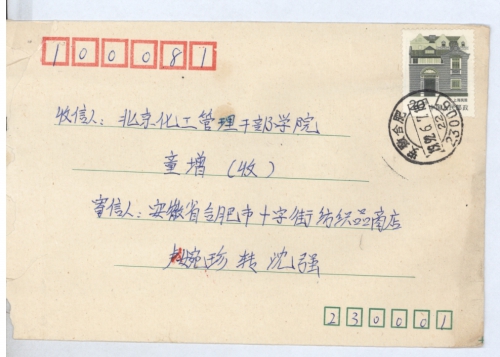 100081
收信人：北京化工管理干部学院
童增（收）
寄信人：安徽省合肥市十字街纺织品商店
婉珍 转 沈强
230001
安徽合肥